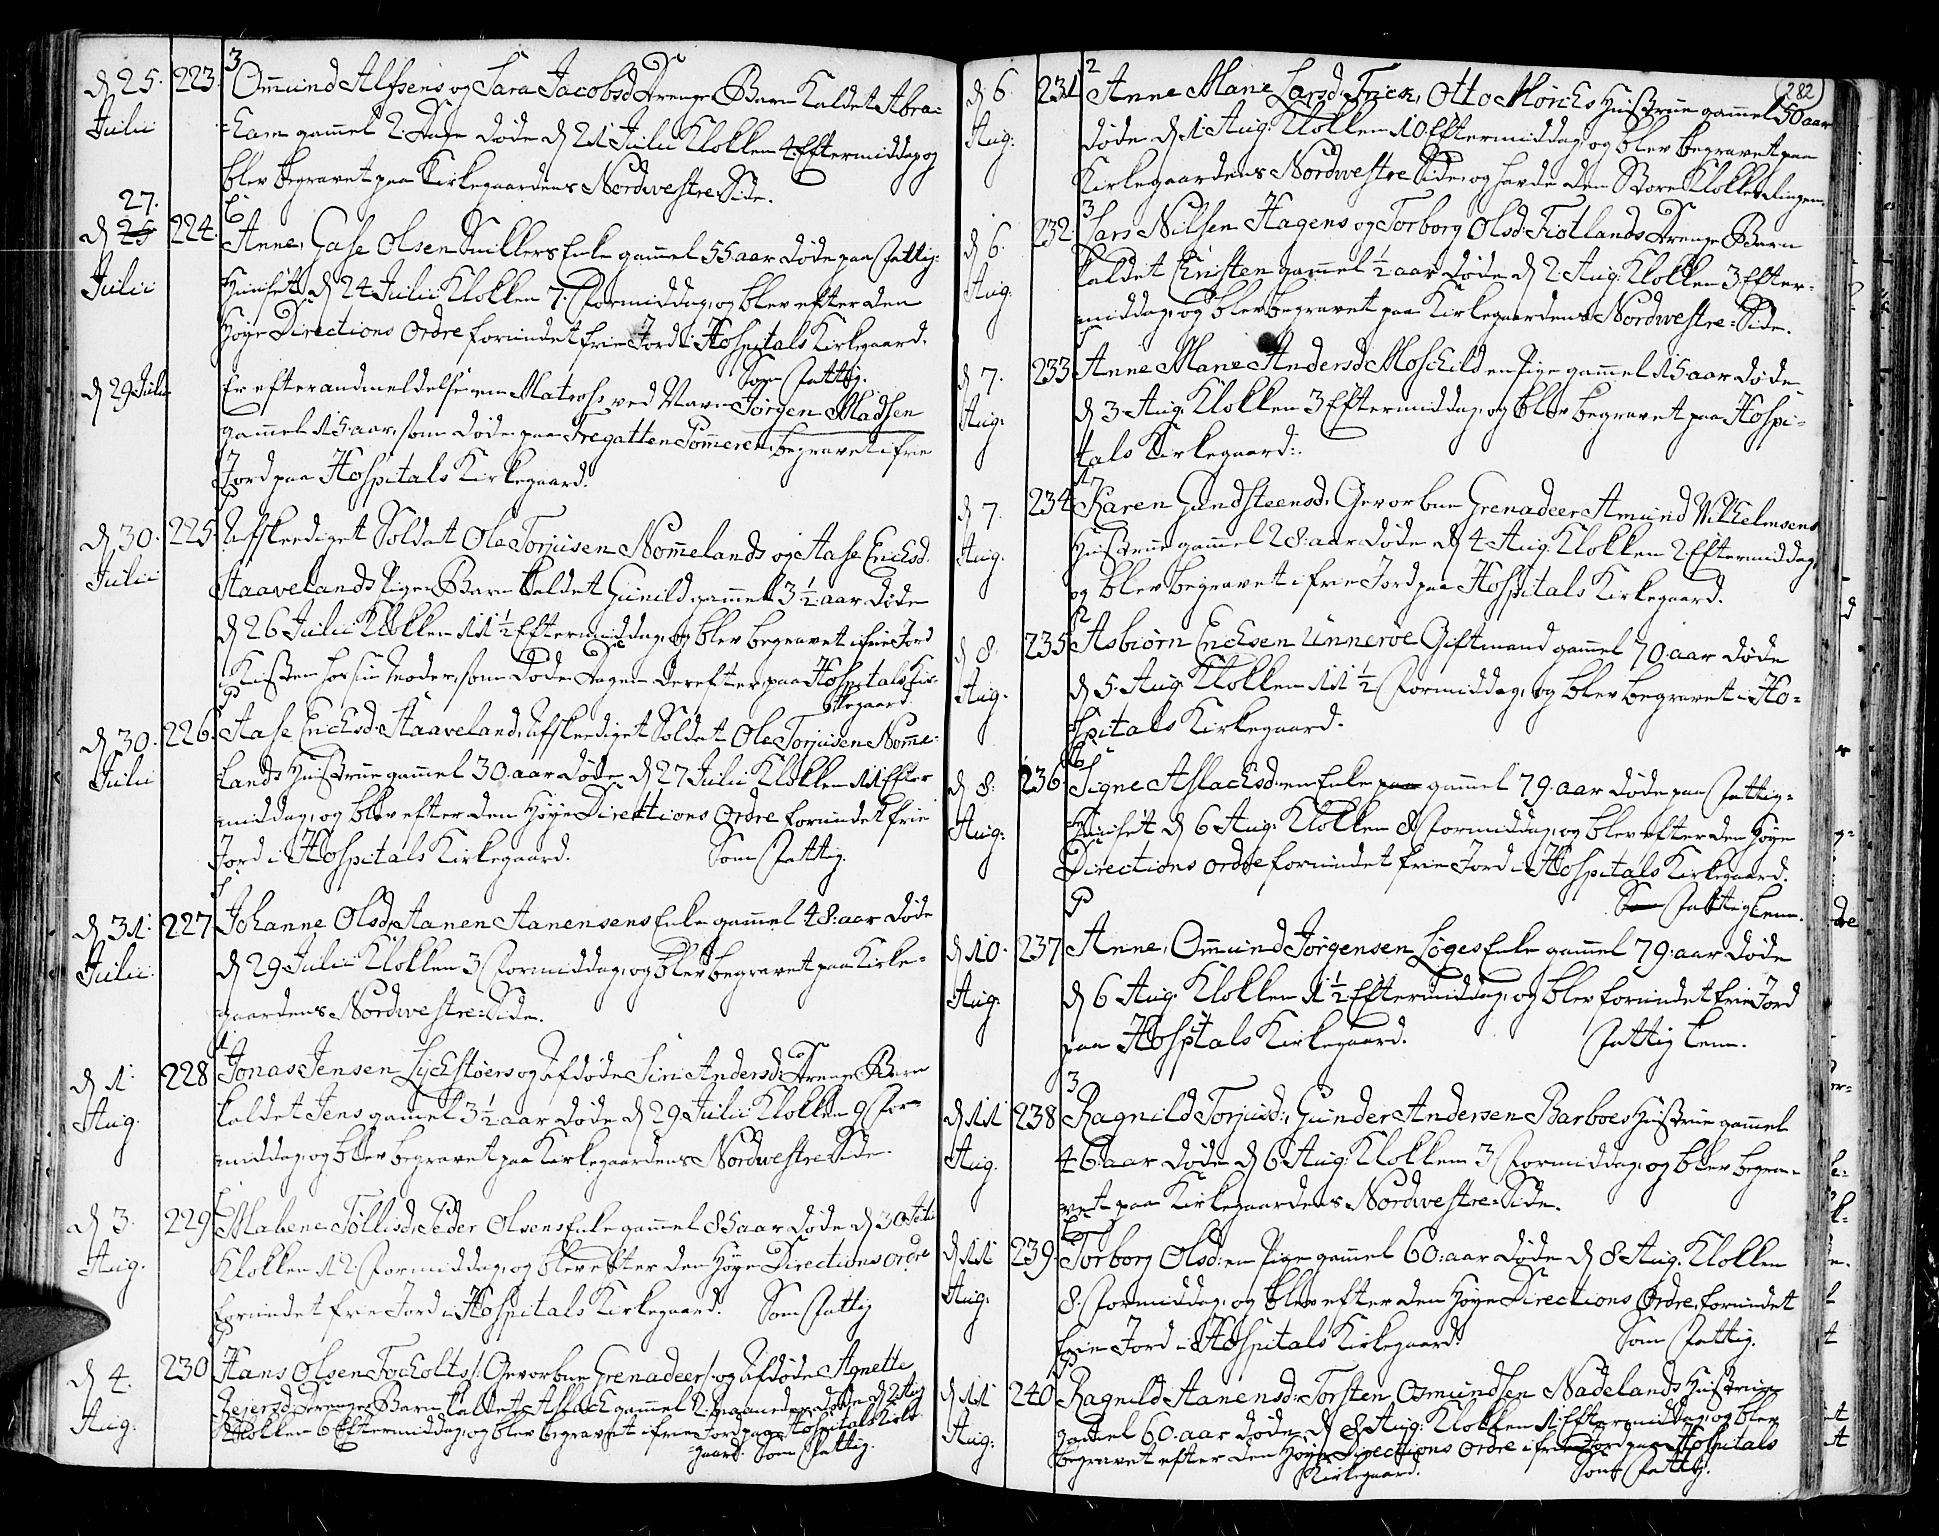 d 25. Julii 223. 3 Ommund Alfsens og Sara Jacobsd Drenge Barn Kaldet Abra=
=ham gammel 2. Dage døde d 21 Julii Klokken 4 Eftermiddag og
blev begravet paa Kirkegaardens Nordwestre Side.
d 27. 25 Julii 224. Anne, Gase Olsen Enke gammel 55 aar døde paa Fattig=
Huuset d 24 Julii Klokken 7. Formiddag, og blev efter den
Høye Directions Ordre forundet frie Jord i Hospitals Kirkegaard.
Som Fattig.
d 29 Julii Er efter andmeldelse en Matros ved Navn Jørgen Madsen
gammel 15 aar, som døde paa Fregatten begravet i frie
Jord paa Hospitals Kirkegaard.
d 30. Julii 225. Afskeediget Soldat Ole Torjusen Nommelands og Aase Erichsd.
Staavelands Pige Barn kaldet Gunild gammel 3 ½ aar døde
d 26 Julii Klokken 11 ½ Eftermiddag, og blev begravet i frie Jord
i Kisten hos sin Moder, som døde Dagen derefter paa Hospitals Kir=
kegaard.
d 30. Julii 226. Aase Erichsd. Staaveland, Afskeediget Soldat Ole Torjusen Nomme=
lands Hustrue gammel 30. aar døde d 27 Julii Klokken 11 Efter
middag, og blev efter den Høye Directions Ordre forundet frie
Jord i Hospitals Kirkegaard. Som Fattig.
d 31. Julii 227 Johanne Olsd, Aanen Aanensens Enke gammel 48. aar døde
d 29 Julii Klokken 3 Formiddag, og blev begravet paa Kirke=
gaardens Nordwestre=Side.
d 1. Aug. 228 Jonas Jensen og Afdøde Siri Andersd. Drenge Barn
kaldet Jens gammel 3 ½ aar døde d 29 Julii Klokken 9 For=
middag, og blev begravet paa Kirkegaardens Nordwestre Side.
d 3. Aug. 229 Malene Tøllisd, Peder Olsens Enke gammel 85 aar døde d 30 Juli
Klokken 12. Formiddag, og blev efter den Høye Directions Ordre
forundet frie Jord i Hospitals Kirkegaard. Som Fattig
d 4. Aug. 230 Hans Olsen Gevorben Grenadeer og Afdøde Agnette
Drenge Barn kaldet Aslach gammel 2. Maaneder døde d 2 Aug
Klokken 6 Eftermiddag, og blev begravet i frie Jord paa Hospitals Kirke
gaard. Som Fattig.
282
d. 6. Aug: 231 2 Anne Marie Larsd. Frick, Otto Mørchs Hustrue gammel 50 aar
døde d 1 Aug. Klokken 10 Eftermiddag, og blev begravet paa
Kirkegaardens Nordwestre Side, og havde den Store Klokke
d 6. Aug. 232. 3 Lars Nilsen Hagens og Torborg Olsd. Fiotlands Drenge Barn
kaldet Christen gammel ½ aar døde d 2 Aug. Klokken 3 Efter=
middag, og blev begravet paa Kirkegaardens Nordwestre=Side.
d 7. Aug. 233 Anne Marie Andersd Moschild en Pige gammel 15 aar døde
d 3 Aug. Klokken 3 Eftermiddag, og blev begravet paa Hospi=
tals Kirkegaard.
d 7. Aug. 234 Karen Gundsteensd, Gevorben Grenadeer Amund Wilhelmsens
Hustrue gammel 28. aar døde d 4 Aug. Klokken 2 Eftermiddag,
og blev begravet i frie Jord paa Hospitals Kirkegaard.
d 8. Aug. 235 Asbiørn Erichsen Unneroe Giftmand gammel 70. aar døde
d 5 Aug. Klokken 11 ½ Formiddag, og blev begravet i Ho=
spitals Kirkegaard.
d 8. Aug: 236 Signe Aslachsd. en Enke paa gammel 79. aar døde paa Fattig=
Huuset d 6 Aug. Klokken 8 Formiddag, og blev efter den Høye
Directions Ordre forundet frie Jord i Hospitals Kirkegaard.
Som Fattig Lem.
d 10. Aug. 237 Anne, Ommund Jørgensen Løges Enke gammel 79. aar døde
d 6 Aug. Klokken 1 ½ Eftermiddag, og blev forundet frie Jord
paa Hospitals Kirkegaard. Fattig Lem.
d 11 Aug. 238 3 Ragnild Torjusd., Gunder Andersen Barboes Hustrue gammel
46. aar døde d 6 Aug. Klokken 3 Formiddag, og blev begra=
vet paa Kirkegaardens Nordwestre=Side.
d 11 Aug. 239. Torborg Olsd. en Pige gammel 60. aar døde d 8 Aug. Klokken
8. Formiddag, og blev efter den Høye Directions Ordre, forundet
frie Jord i Hospitals Kirkegaard. Som Fattig.
d 11 Aug: 240 Ragnild Aanensd. Torsten Osmundsen Nadelands Hustrue
gammel 60. aar døde d 8 Aug: Klokken 1. Eftermiddag, og blev
begravet efter den Høye Directions Ordre i frie Jord paa Hospitals
Kirkegaard. Som Fattig.